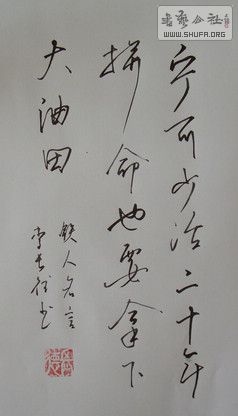 宁可少活二十年
拼命也要拿下
大油田
铁人名言
书法公社
WWW.SHUFA.ORG